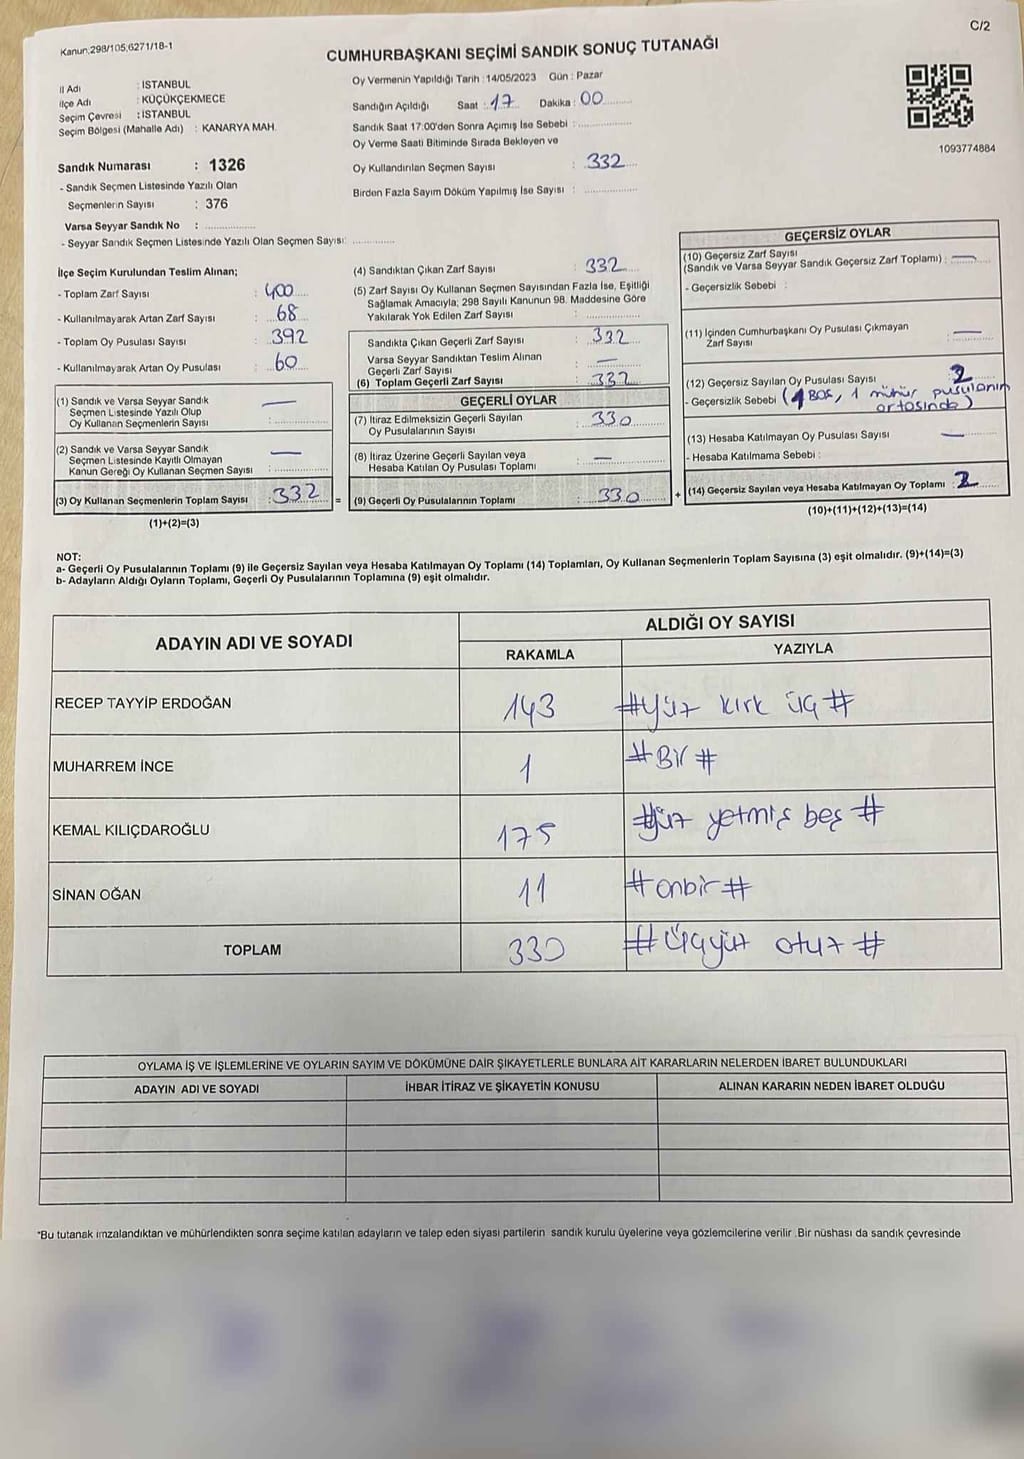 C/2
Kanun;298/105;6271/18-1
CUMHURBAŞKANI SEÇİMİ SANDIK SONUÇ TUTANAĞI
İl Adı : İSTANBUL
İlçe Adı : KÜÇÜKÇEKMECE
Seçim Çevresi : İSTANBUL
Seçim Bölgesi (Mahalle Adı) : KANARYA MAH.
Oy Vermenin Yapıldığı Tarih : 14/05/2023 Gün : Pazar
Sandığın Açıldığı Saat : 17 Dakika : 00
Sandık Saat 17:00'den Sonra Açımış İse Sebebi :
Oy Verme Saati Bitiminde Sırada Bekleyen ve
Oy Kullandırılan Seçmen Sayısı : 332
Birden Fazla Sayım Döküm Yapılmış İse Sayısı :
1093774884
Sandık Numarası : 1326
- Sandık Seçmen Listesinde Yazılı Olan
Seçmenlerin Sayısı : 376
Varsa Seyyar Sandık No :
- Seyyar Sandık Seçmen Listesinde Yazılı Olan Seçmen Sayısı:
İlçe Seçim Kurulundan Teslim Alınan;
- Toplam Zarf Sayısı : 400
- Kullanılmayarak Artan Zarf Sayısı : 68
- Toplam Oy Pusulası Sayısı : 392
- Kullanılmayarak Artan Oy Pusulası : 60
(1) Sandık ve Varsa Seyyar Sandık
Seçmen Listesinde Yazılı Olup
Oy Kullanan Seçmenlerin Sayısı : —
(2) Sandık ve Varsa Seyyar Sandık
Seçmen Listesinde Kayıtlı Olmayan
Kanun Gereği Oy Kullanan Seçmen Sayısı : —
(3) Oy Kullanan Seçmenlerin Toplam Sayısı : 332 =
(1)+(2)=(3)
(4) Sandıktan Çıkan Zarf Sayısı : 332
(5) Zarf Sayısı Oy Kullanan Seçmen Sayısından Fazla İse, Eşitliği
Sağlamak Amacıyla; 298 Sayılı Kanunun 98. Maddesine Göre
Yakılarak Yok Edilen Zarf Sayısı :
Sandıkta Çıkan Geçerli Zarf Sayısı : 332
Varsa Seyyar Sandıktan Teslim Alınan
Geçerli Zarf Sayısı : —
(6) Toplam Geçerli Zarf Sayısı : 332
GEÇERLİ OYLAR
(7) İtiraz Edilmeksizin Geçerli Sayılan
Oy Pusulalarının Sayısı : 330
(8) İtiraz Üzerine Geçerli Sayılan veya
Hesaba Katılan Oy Pusulası Toplamı : —
(9) Geçerli Oy Pusulalarının Toplamı : 330 +
GEÇERSİZ OYLAR
(10) Geçersiz Zarf Sayısı
(Sandık ve Varsa Seyyar Sandık Geçersiz Zarf Toplamı) : —
- Geçersizlik Sebebi :
(11) İçinden Cumhurbaşkanı Oy Pusulası Çıkmayan
Zarf Sayısı : —
(12) Geçersiz Sayılan Oy Pusulası Sayısı : 2
- Geçersizlik Sebebi (1 BOŞ, 1 mühür pusulanın
ortasında)
(13) Hesaba Katılmayan Oy Pusulası Sayısı : —
- Hesaba Katılmama Sebebi :
(14) Geçersiz Sayılan veya Hesaba Katılmayan Oy Toplamı : 2
(10)+(11)+(12)+(13)=(14)
NOT:
a- Geçerli Oy Pusulalarının Toplamı (9) ile Geçersiz Sayılan veya Hesaba Katılmayan Oy Toplamı (14) Toplamları, Oy Kullanan Seçmenlerin Toplam Sayısına (3) eşit olmalıdır. (9)+(14)=(3)
b- Adayların Aldığı Oyların Toplamı, Geçerli Oy Pusulalarının Toplamına (9) eşit olmalıdır.
ADAYIN ADI VE SOYADI ALDIĞI OY SAYISI
RAKAMLA YAZIYLA
RECEP TAYYİP ERDOĞAN 143 #Yüz kırk üç#
MUHARREM İNCE 1 #Bir#
KEMAL KILIÇDAROĞLU 175 #Yüz yetmiş beş#
SİNAN OĞAN 11 #onbir#
TOPLAM 330 #Üçyüz otuz#
OYLAMA İŞ VE İŞLEMLERİNE VE OYLARIN SAYIM VE DÖKÜMÜNE DAİR ŞİKAYETLERLE BUNLARA AİT KARARLARIN NELERDEN İBARET BULUNDUKLARI
ADAYIN ADI VE SOYADI İHBAR İTİRAZ VE ŞİKAYETİN KONUSU ALINAN KARARIN NEDEN İBARET OLDUĞU
*Bu tutanak imzalandıktan ve mühürlendikten sonra seçime katılan adayların ve talep eden siyasi partilerin sandık kurulu üyelerine veya gözlemcilerine verilir .Bir nüshası da sandık çevresinde